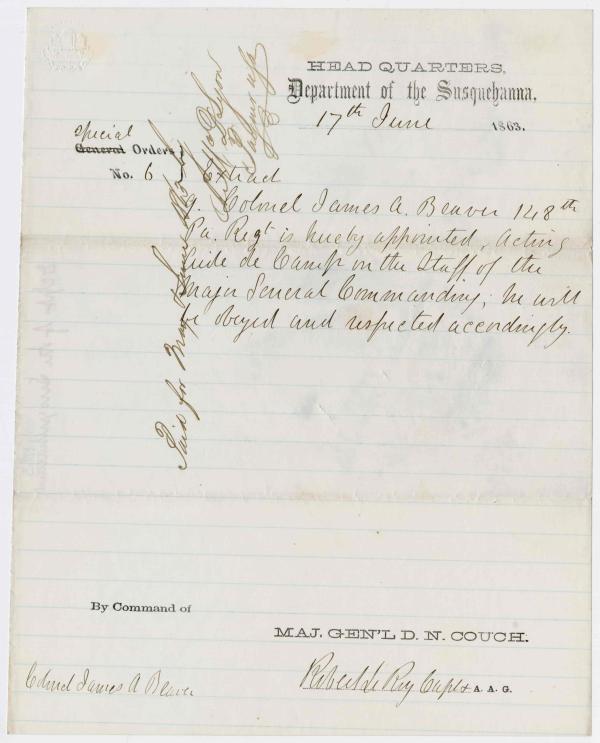 HEAD QUARTERS,
Department of the Susquehanna,
17th June 1863.
Special
General Orders
No. 6 Extract
9. Colonel James A. Beaver 148th
Pa. Regt is hereby appointed, Acting
Aide de Camp on the Staff of the
Major General Commanding; he will
be obeyed and respected accordingly.
Paid for
By Command of
MAJ. GEN'L D. N. COUCH.
Robert Le Roy Capt & A. A. G.
Colonel James A Beaver